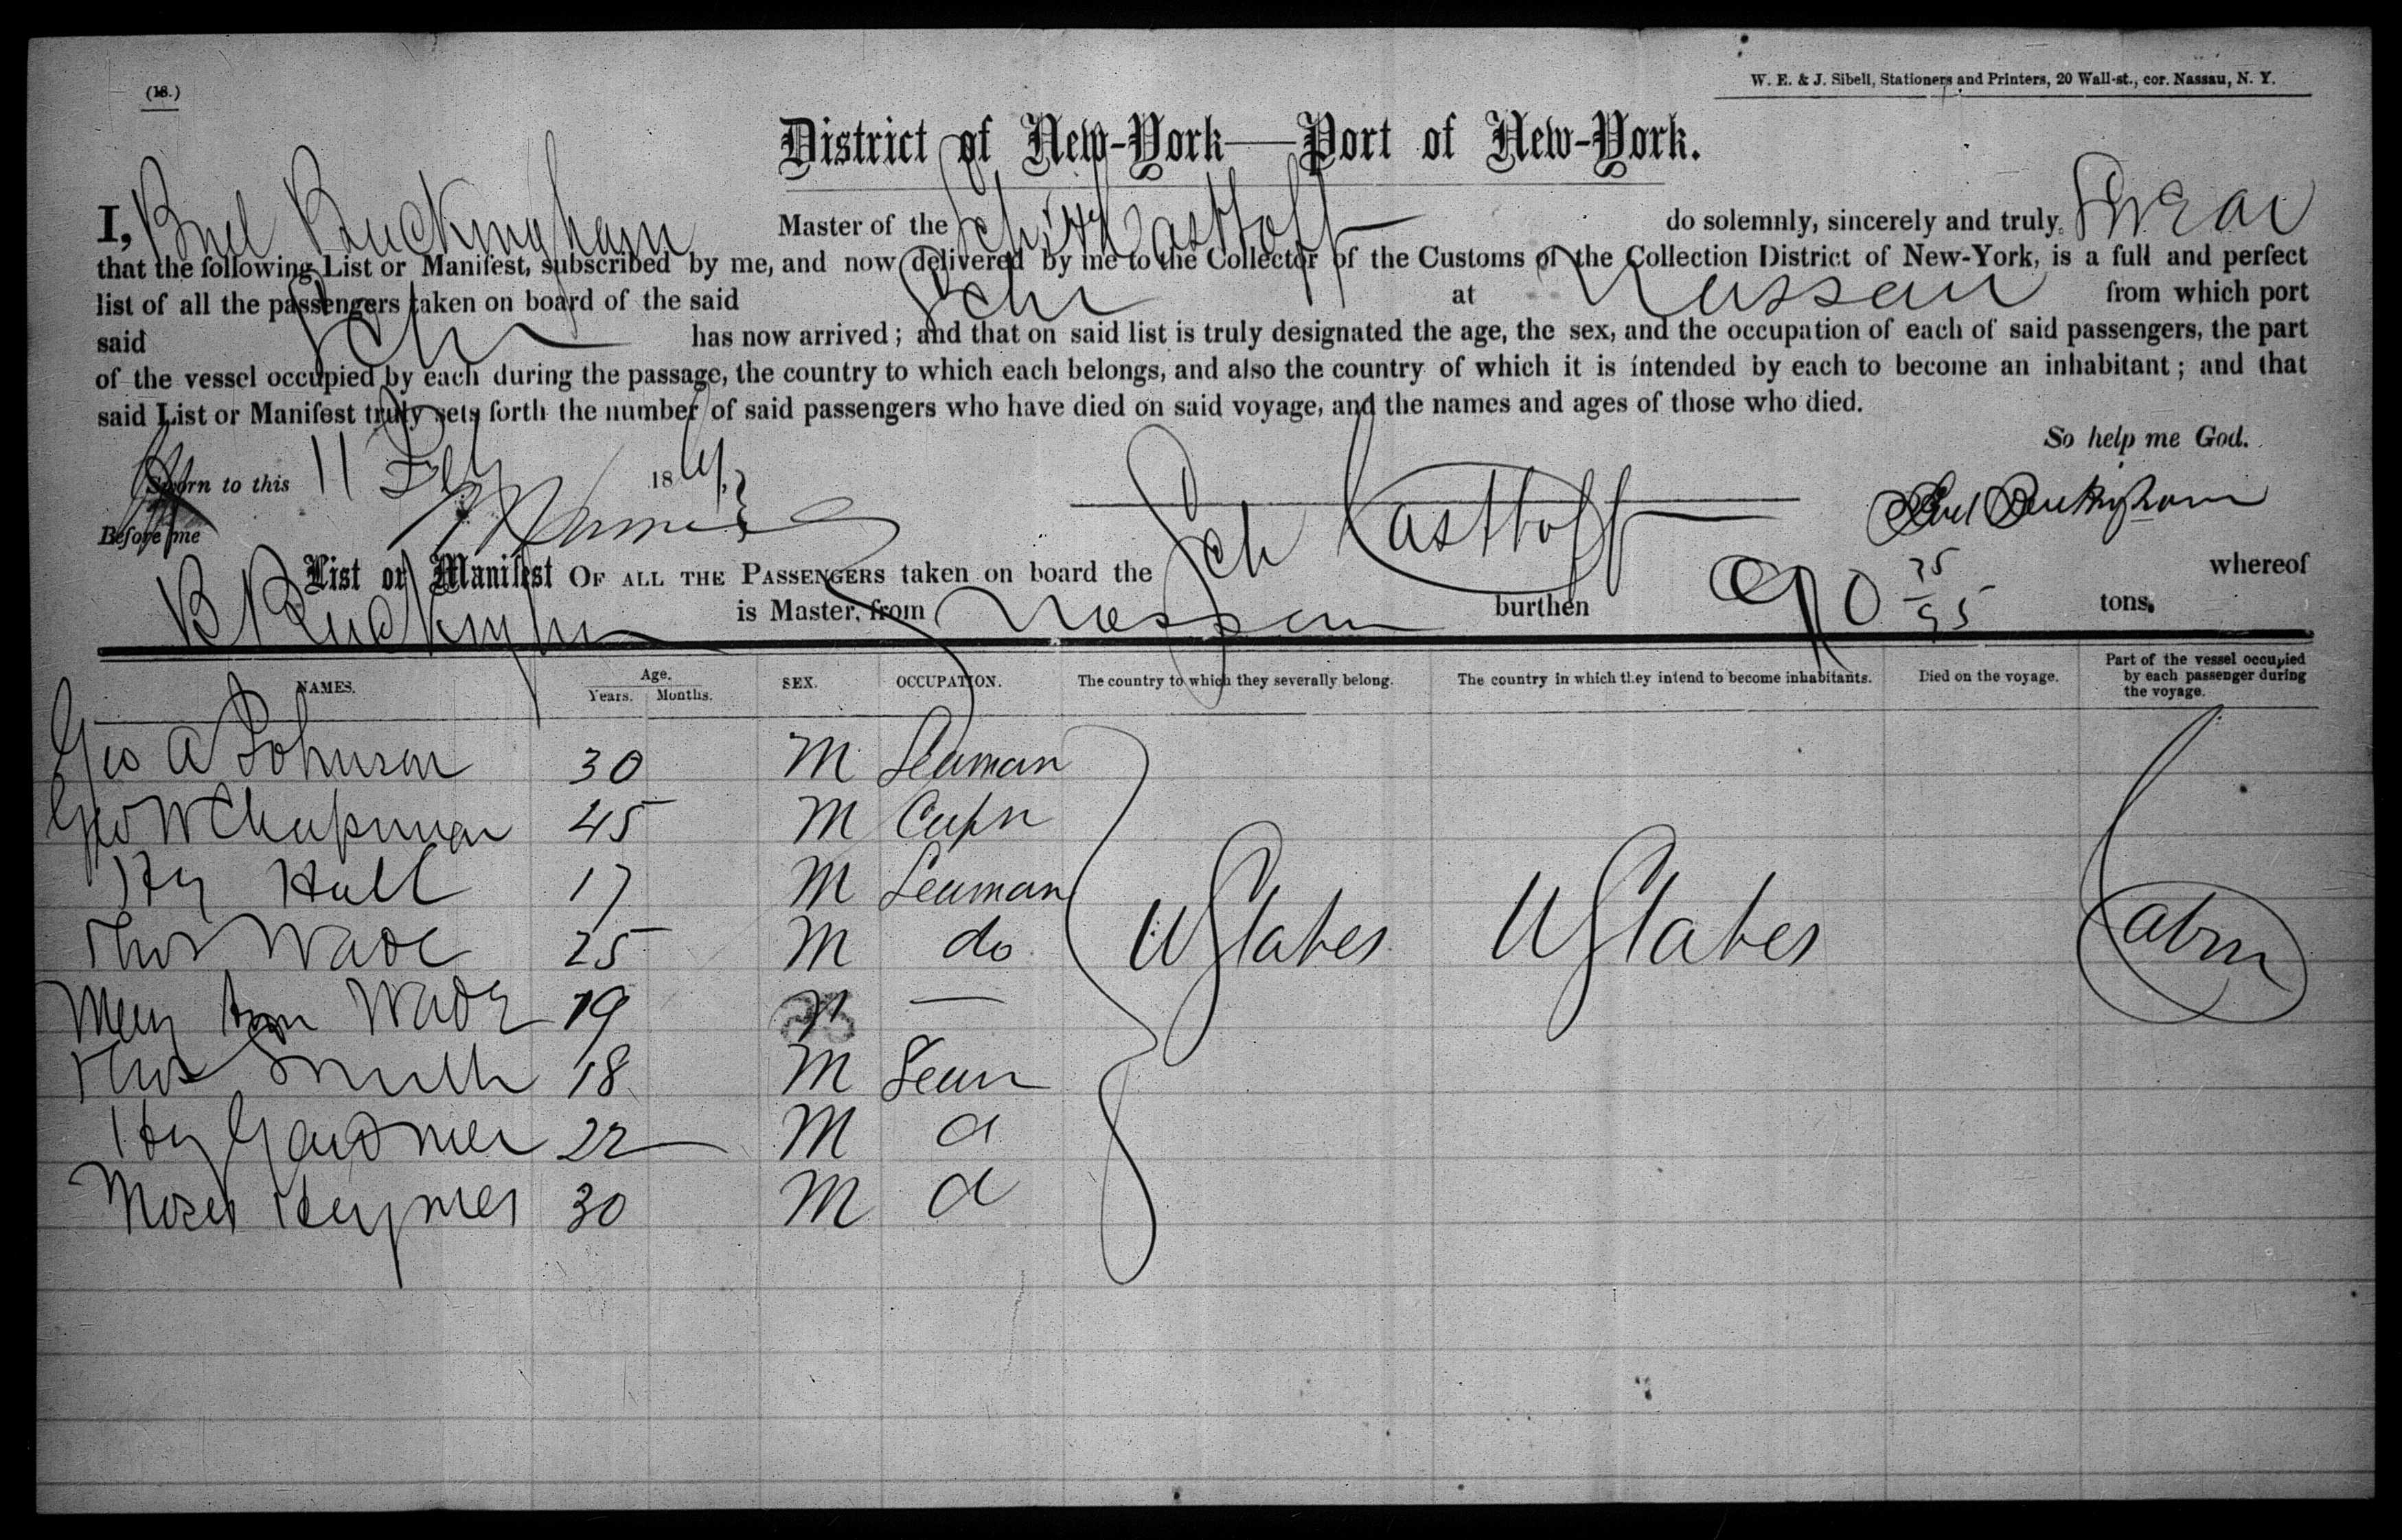 (18.)
W. E. & J. Sibell, Stationers and Printers, 20 Wall-st., cor. Nassau, N. Y.
District of New-York—Port of New-York.
I, Buel Buckingham Master of the Sch do solemnly, sincerely and truly Swear
that the following List or Manifest, subscribed by me, and now delivered by me to the Collector of the Customs of the Collection District of New-York, is a full and perfect
list of all the passengers taken on board of the said Sch at Nassau from which port
said Sch has now arrived; and that on said list is truly designated the age, the sex, and the occupation of each of said passengers, the part
of the vessel occupied by each during the passage, the country to which each belongs, and also the country of which it is intended by each to become an inhabitant; and that
said List or Manifest truly sets forth the number of said passengers who have died on said voyage, and the names and ages of those who died.
So help me God.
Sworn to this 11 Feb 186
Before me
Buel Buckingham
List or Manifest OF ALL THE PASSENGERS taken on board the Sch Kasthoff whereof
B Buckingham is Master, from Nassau burthen 90 tons.
NAMES. Age. Years. Months. SEX. OCCUPATION. The country to which they severally belong. The country in which they intend to become inhabitants. Died on the voyage. Part of the vessel occupied by each passenger during the voyage.
Geo A Johnson 30 M Seaman
Geo W Chapman 45 M Captn
Hy Hall 17 M Seaman
Thos Wade 25 M do U States U States Cabin
Mary Ann Wade 19 —
Thos Smith 18 M Seam
Hy Gardner 22 M d
Moses Haymes 30 M d